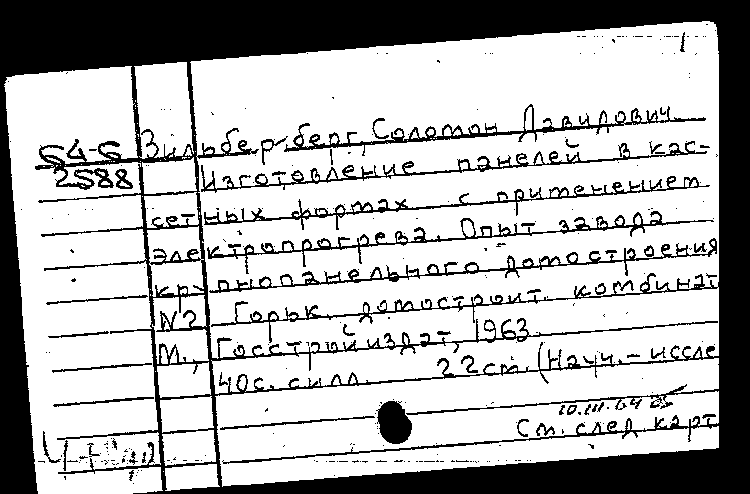 1
64-6 Зильбер-берг, Соломон Давидович.
2588 Изготовление панелей в кас-
сетных формах с применением
электропрогрева. Опыт завода
крупнопанельного домостроения
N2 Горьк. домостроит. комбинат
М., Госстройиздат, 1963.
40с. с илл. 22 см. (Науч.-иссле
10.III.64
См. след карт